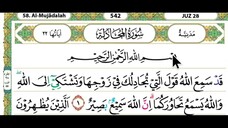 58. Al-Mujādalah 542 JUZ 28
مدنية سورة المجادلة آياتها ٢٢
بِسْمِ اللَّهِ الرَّحْمَٰنِ الرَّحِيمِ
قَدْ سَمِعَ اللَّهُ قَوْلَ الَّتِي تُجَادِلُكَ فِي زَوْجِهَا وَتَشْتَكِي إِلَى اللَّهِ
وَاللَّهُ يَسْمَعُ تَحَاوُرَكُمَا إِنَّ اللَّهَ سَمِيعٌ بَصِيرٌ ١ الَّذِينَ يُظَاهِرُونَ